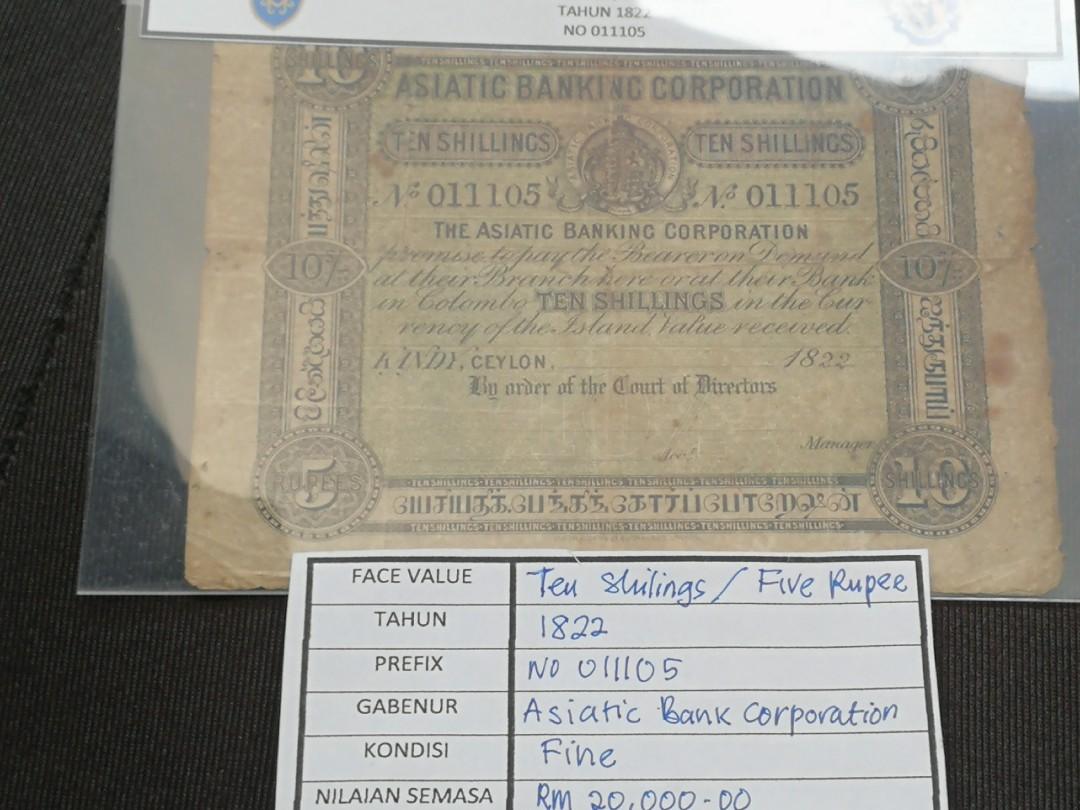 TAHUN 1822
NO 011105
SHILLINGS
ASIATIC BANKING CORPORATION
TEN SHILLINGS TEN SHILLINGS
No 011105 No 011105
THE ASIATIC BANKING CORPORATION
promise to pay the Bearer on Demand
at their Branch here or at their Bank
in Colombo TEN SHILLINGS in the Cur
rency of the Island Value received.
10/- 10/-
KANDY, CEYLON, 1822
By order of the Court of Directors
Manager
Acct
5 RUPEES
10 SHILLINGS
TEN SHILLINGS TEN SHILLINGS TEN SHILLINGS TEN SHILLINGS TEN SHILLINGS TEN SHILLINGS
TEN SHILLINGS TEN SHILLINGS TEN SHILLINGS TEN SHILLINGS TEN SHILLINGS TEN SHILLINGS
FACE VALUE Ten Shilings / Five Rupee
TAHUN 1822
PREFIX NO 011105
GABENUR Asiatic Bank Corporation
KONDISI Fine
NILAIAN SEMASA RM 20,000-00